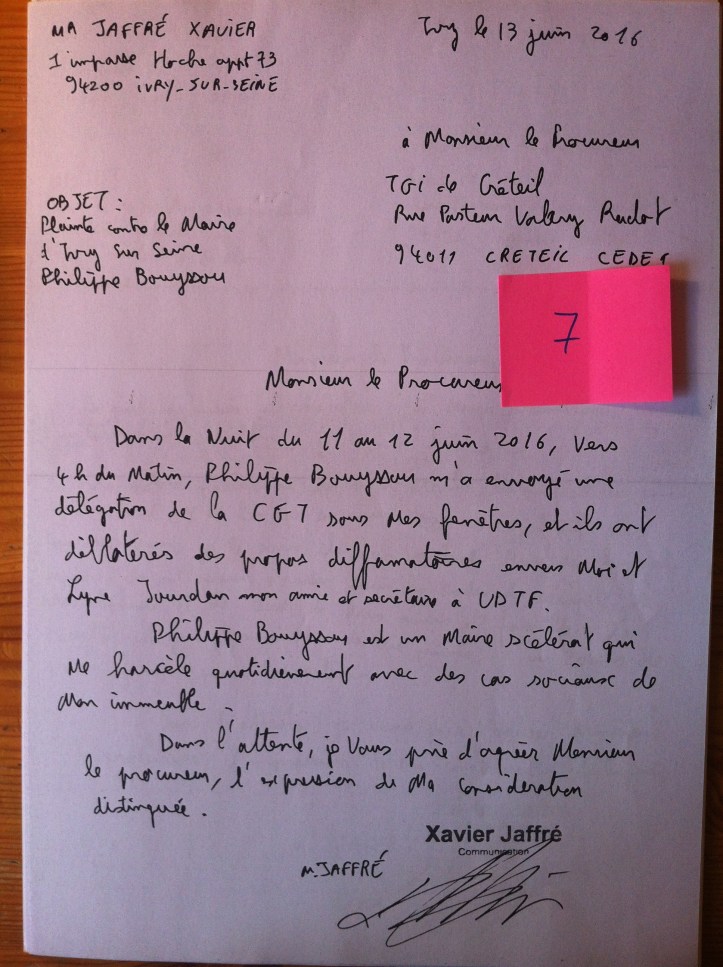 MR JAFFRÉ XAVIER
1 impasse Hoche appt 73
94200 IVRY-SUR-SEINE
Ivry le 13 juin 2016
à Monsieur le Procureur
TGI de Créteil
Rue Pasteur Valery Radot
94011 CRETEIL CEDEX
OBJET :
Plainte contre le Maire
d'Ivry sur Seine
Philippe Bouyssou
7
Monsieur le Procureur
Dans la Nuit du 11 au 12 juin 2016, Vers
4h du Matin, Philippe Bouyssou m'a envoyé une
délégation de la CGT sous Mes fenêtres, et ils ont
déblaterés des propos diffamatoires envers Moi et
Lyne Jourdan mon amie et secrétaire à UDTF.
Philippe Bouyssou est un Maire scélérat qui
Me harcèle quotidiènement avec des cas sociaux de
Mon immeuble.
Dans l'attente, je Vous prie d'agréer Monsieur
le procureur, l'expression de Ma Considération
distinguée.
Xavier Jaffré
Communication
M. JAFFRÉ